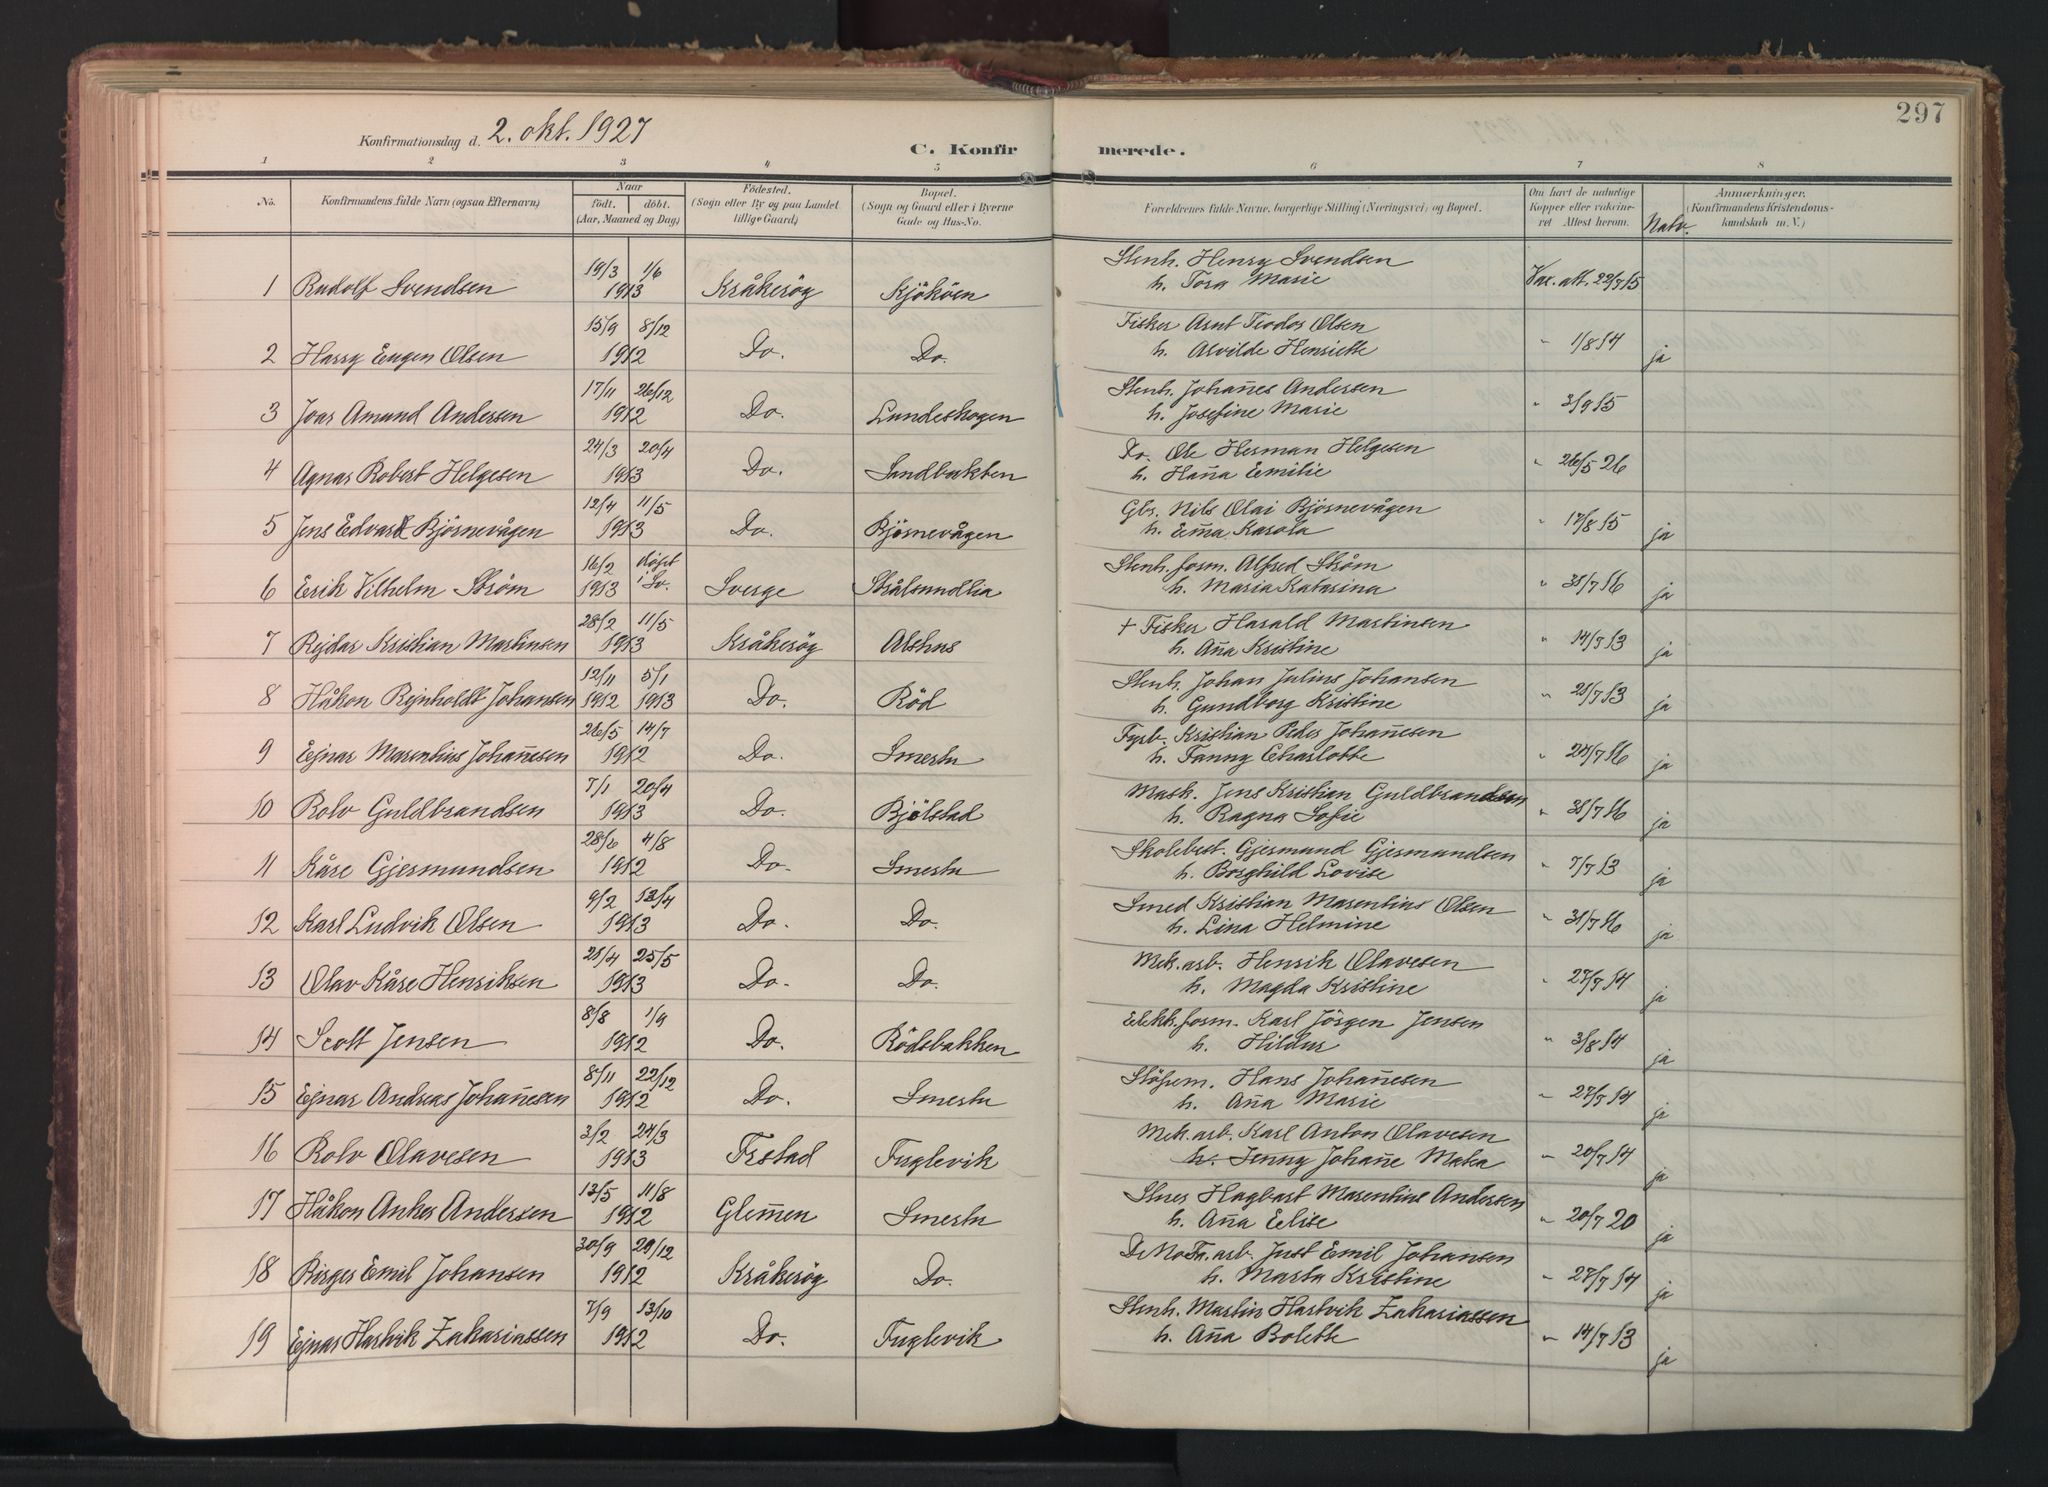 297
Konfirmationsdag d. 2. okt. 1927
C. Konfirmerede.
1 2 3 4 5 6 7 8
No. Konfirmandens fulde Navn (ogsaa Efternavn). Naar födt. döbt. (Aar, Maaned og Dag) Födested. (Sogn eller By og paa Landet tillige Gaard) Bopæl. (Sogn og Gaard eller i Byerne Gade og Hus-No. Forældrenes fulde Navne, borgerlige Stilling (Næringsvei) og Bopæl. Om havt de naturlige Kopper eller vakcineret Attest herom. Natv. Anmærkninger. (Konfirmandens Kristendomskundskab m. V.)
1 Rudolf Svendsen 19/3 1/6 1913 Kråkeröy Kjököen Stenh. Henry Svendsen h. Tora Marie Vax. att. 22/7 15
2 Harry Eugen Olsen 15/9 8/12 1912 Do. Do. Fisker Arnt Teodor Olsen h. Alvilde Henriette " 1/8 14 ja
3 Joar Amund Andersen 17/11 26/12 1912 Do. Lundeskogen Stenh. Johan̄es Andersen h. Josefine Marie " 3/9 15
4 Agnar Robert Helgesen 24/3 20/4 1913 Do. Sandbakken Do. Ole Herman Helgesen h. Han̄a Emilie " 26/5 26
5 Jens Edvard Björnevågen 12/4 11/5 1913 Do. Björnevågen Gbr. Nils Olai Björnevågen h. Em̄a Karola " 17/8 15 ja
6 Erik Vilhelm Strøm 16/2 1913 döpt i Sv. Sverge Strålsundlia Stenh. form. Alfred Strøm h. Maria Katarina " 31/7 16 ja
7 Rejdar Kristian Martinsen 28/2 11/5 1913 Kråkeröy Alshus + Fisker Harald Martinsen h. An̄a Kristine " 14/7 13 ja
8 Håkon Rejnholdt Johansen 12/11 1912 5/1 1913 Do. Röd Stenh. Johan Julius Johansen h. Gundborg Kristine " 21/7 13 ja
9 Ejnar Marentius Johan̄esen 26/5 14/7 1912 Do. Smertu Fyrb. Kristian Peder Johan̄esen h. Fanny Charlotte " 24/7 16 ja
10 Rolv Guldbrandsen 7/1 20/4 1913 Do. Bjölstad Mask. Jens Kristian Guldbrandsen h. Ragna Sofie " 31/7 16 ja
11 Kåre Gjermundsen 28/6 4/8 1912 Do. Smertu Skolebest. Gjermund Gjermundsen h. Borghild Lovise " 7/7 13 ja
12 Karl Ludvik Olsen 9/2 13/4 1913 Do. Do. Smed Kristian Marentius Olsen h. Lina Helmine " 31/7 16 ja
13 Olav Kåre Henriksen 21/4 25/5 1913 Do. Do. Mek. arb. Henrik Olavesen h. Magda Kristine " 27/7 14 ja
14 Scott Jensen 8/8 1/9 1912 Do. Rödsbakken Elekk. form. Karl Jörgen Jensen h. Hildur " 3/8 14 ja
15 Ejnar Andreas Johan̄esen 8/11 22/12 1912 Do. Smertu Stöperm. Hans Johan̄esen h. An̄a Marie " 27/7 14 ja
16 Rolv Olavesen 3/2 24/3 1913 Frstad Fuglevik Mek. arb. Karl Anton Olavesen h. Jenny Johan̄e Maka " 20/7 14 ja
17 Håkon Anker Andersen 13/5 11/8 1912 Glem̄en Smertu Hagbart Marentius Andersen h. An̄a Elise " 20/7 20 ja
18 Birger Emil Johansen 30/9 29/12 1912 Kråkeröy Do. DeNoFa. arb. Just Emil Johansen h. Marta Kristine " 27/7 14 ja
19 Ejnar Hartvik Zakariassen 7/9 13/10 1912 Do. Fuglevik Stenh. Martin Hartvik Zakariassen h. An̄a Bolette " 14/7 13 ja